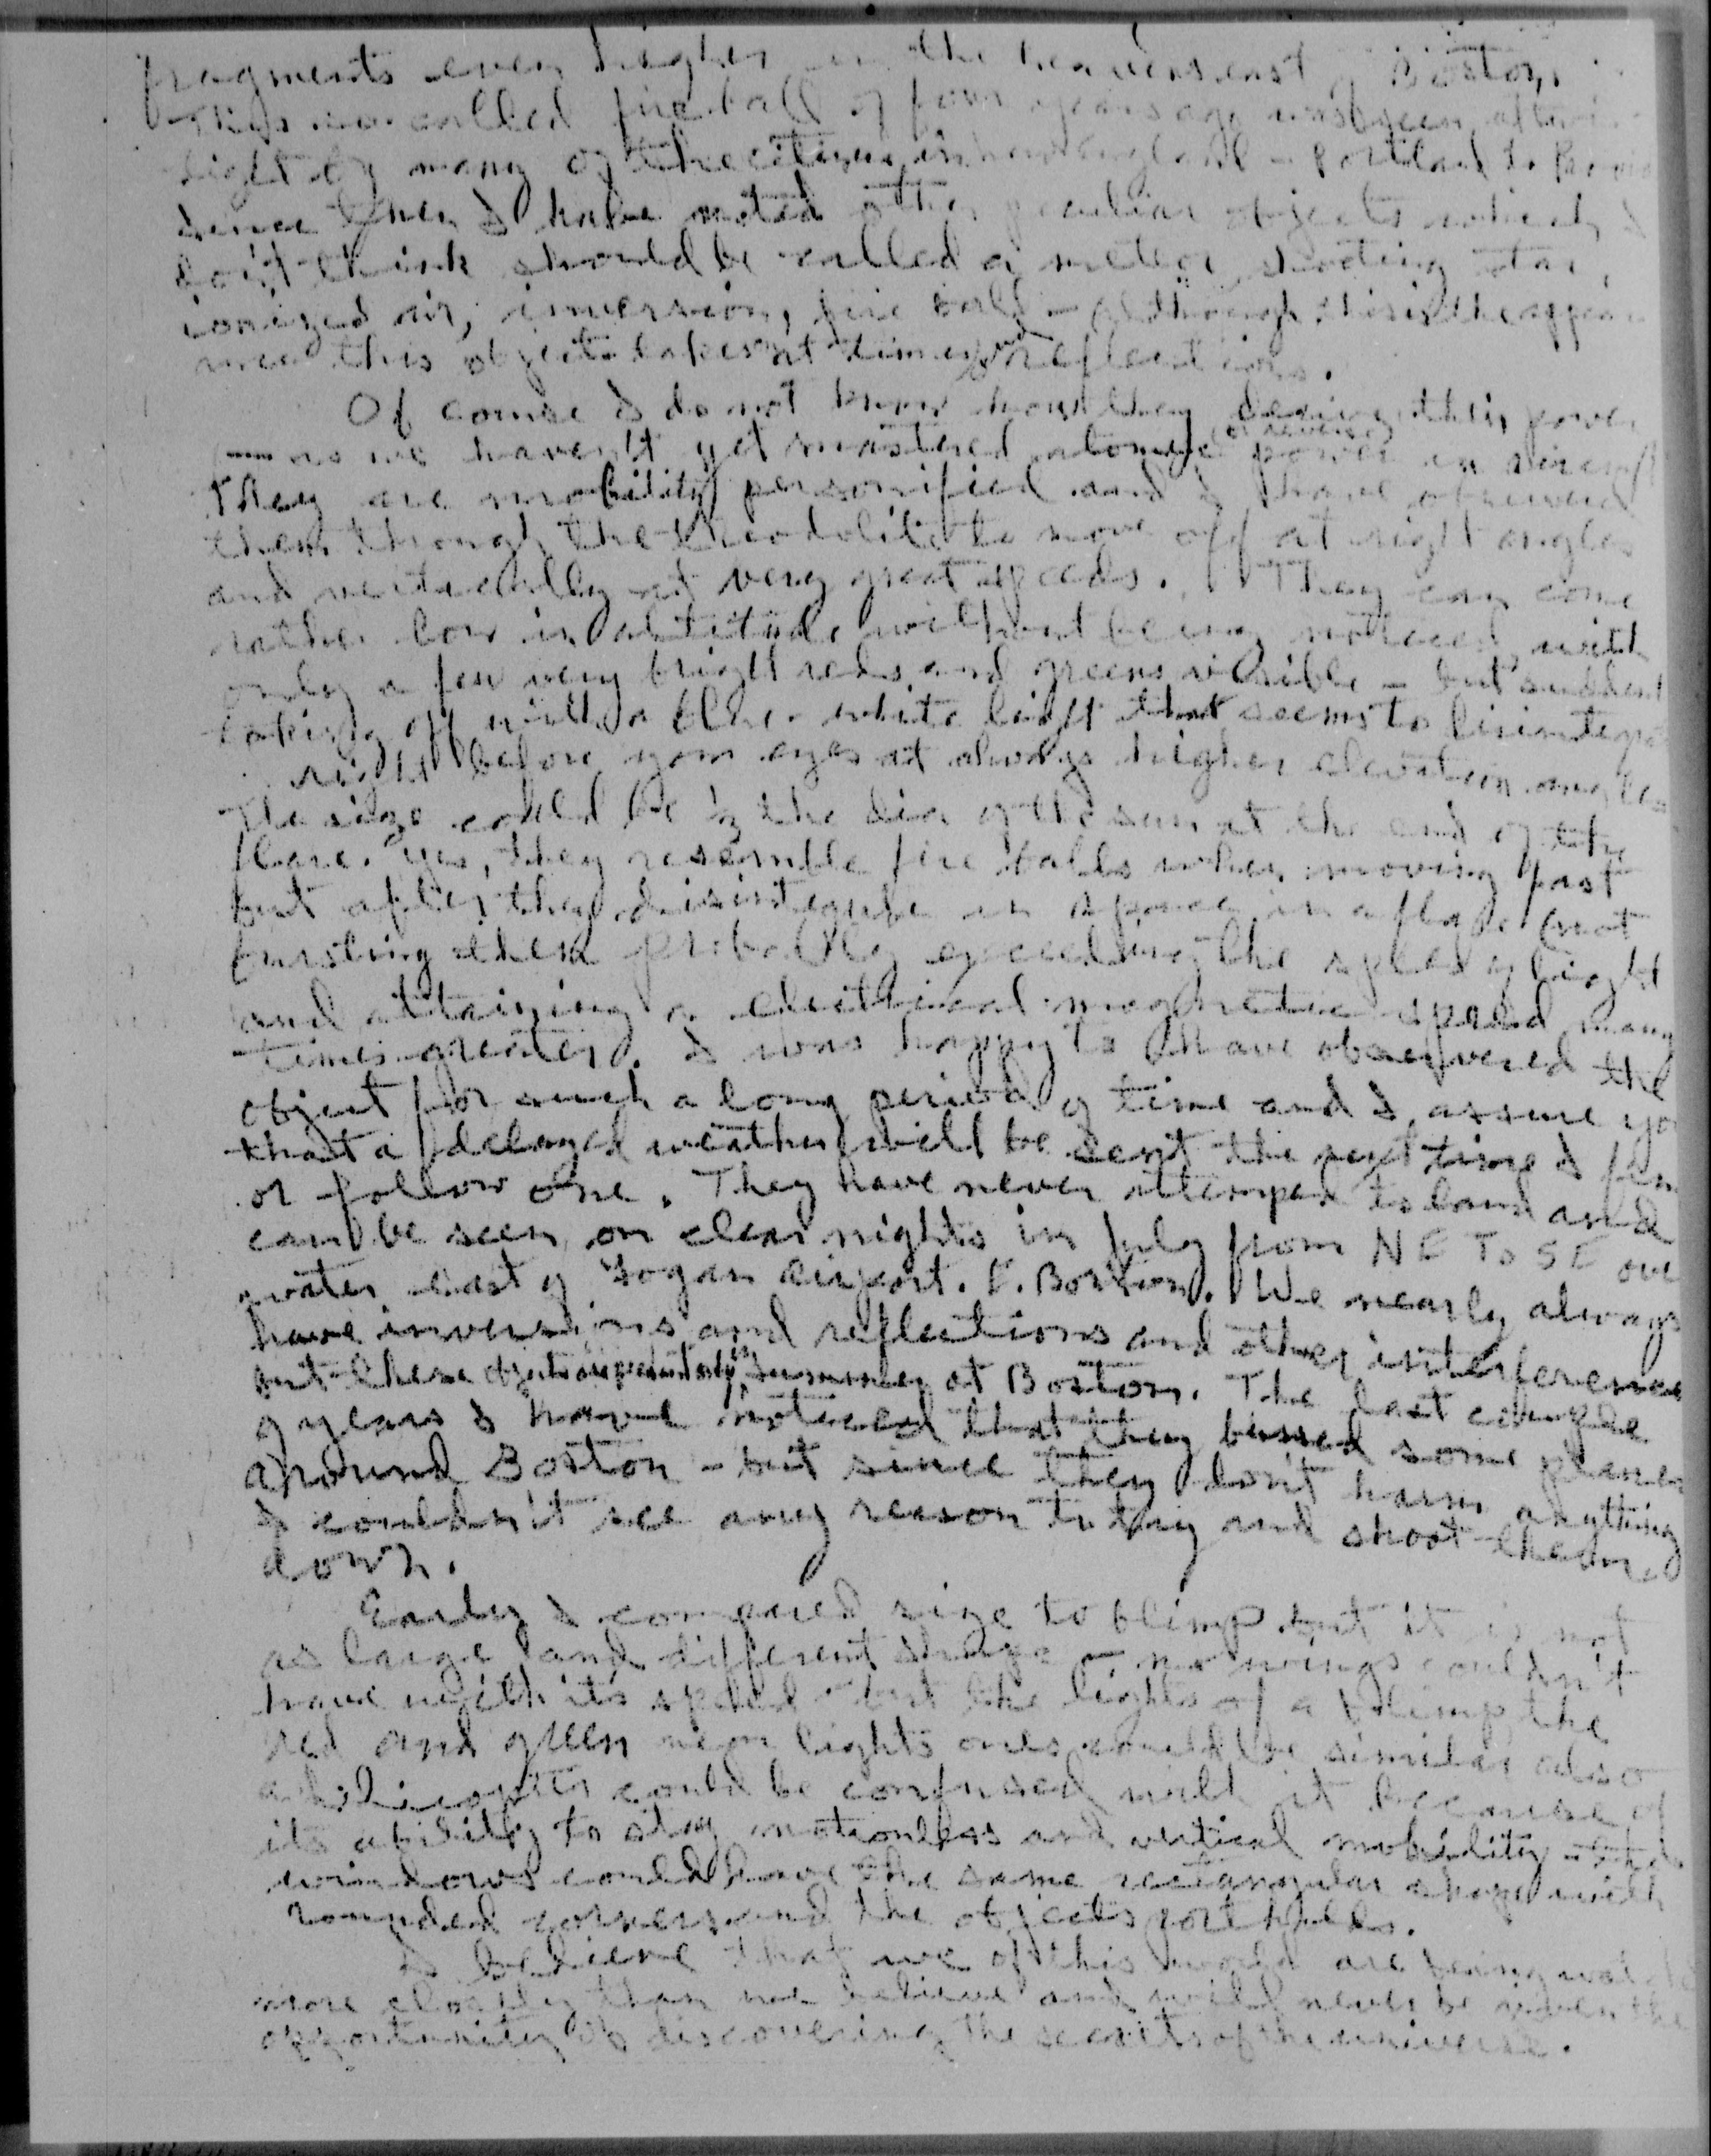 fragments even higher in the heavens east of Boston.
This so called fire ball of four years ago was seen
sight by many of the citizens in New England - Portland to
since then I have noted other peculiar objects which I
don't think should be called a meteor, shooting star,
ionized air, inversion, fire ball - although this is the appear
ance this object takes at times and reflections.
Of course I do not know how they derive this power
as we haven't yet mastered atomic power in aircraft
They are mobility personified and I have observed
them through the theodolite to move off at right angles
and vertically at very great speeds. They can come
rather low in altitude without being noticed, with
only a few very bright reds and greens visible - but suddenl
taking off with a blue-white light that seems to disintegra
right before your eyes at always higher elevation angles
The size could be ½ the dia of the sun at the end of the
flare. Yes, they resemble fire balls when moving fast
but after they disintegrate in space in a flare (not
bursting then probably exceeding the speed of light
and attaining a electrical magnetic speed many
times greater. I was happy to have observered the
object for such a long period of time and I assure yo
that a delayed weather will be sent the next time I
or follow one. They have never attemped to land and
can be seen on clear nights in July from NE To SE ove
water east of Logan airport. E. Boston. We nearly always
have inversions and reflections and other interference
but these objects in summer at Boston. The last couple
of years I have noticed that they buzzed some planes
around Boston - but since they don't harm anything
I couldn't see any reason to try and shoot them
down.
Early I compared size to blimp but it is not
as large and different shape - no wings couldn't
have with its speed - but the lights of a blimp, the
red and green neon lights ones could be similar also
a helicopter could be confused with it because of
its ability to stay motionless and vertical mobility - the
windows could have the same rectangular shape with
rounded corners and the objects port holes.
I believe that we of this world are being watch
more closely than we believe and will never be given the
opportunity of discovering the secrets of the universe.